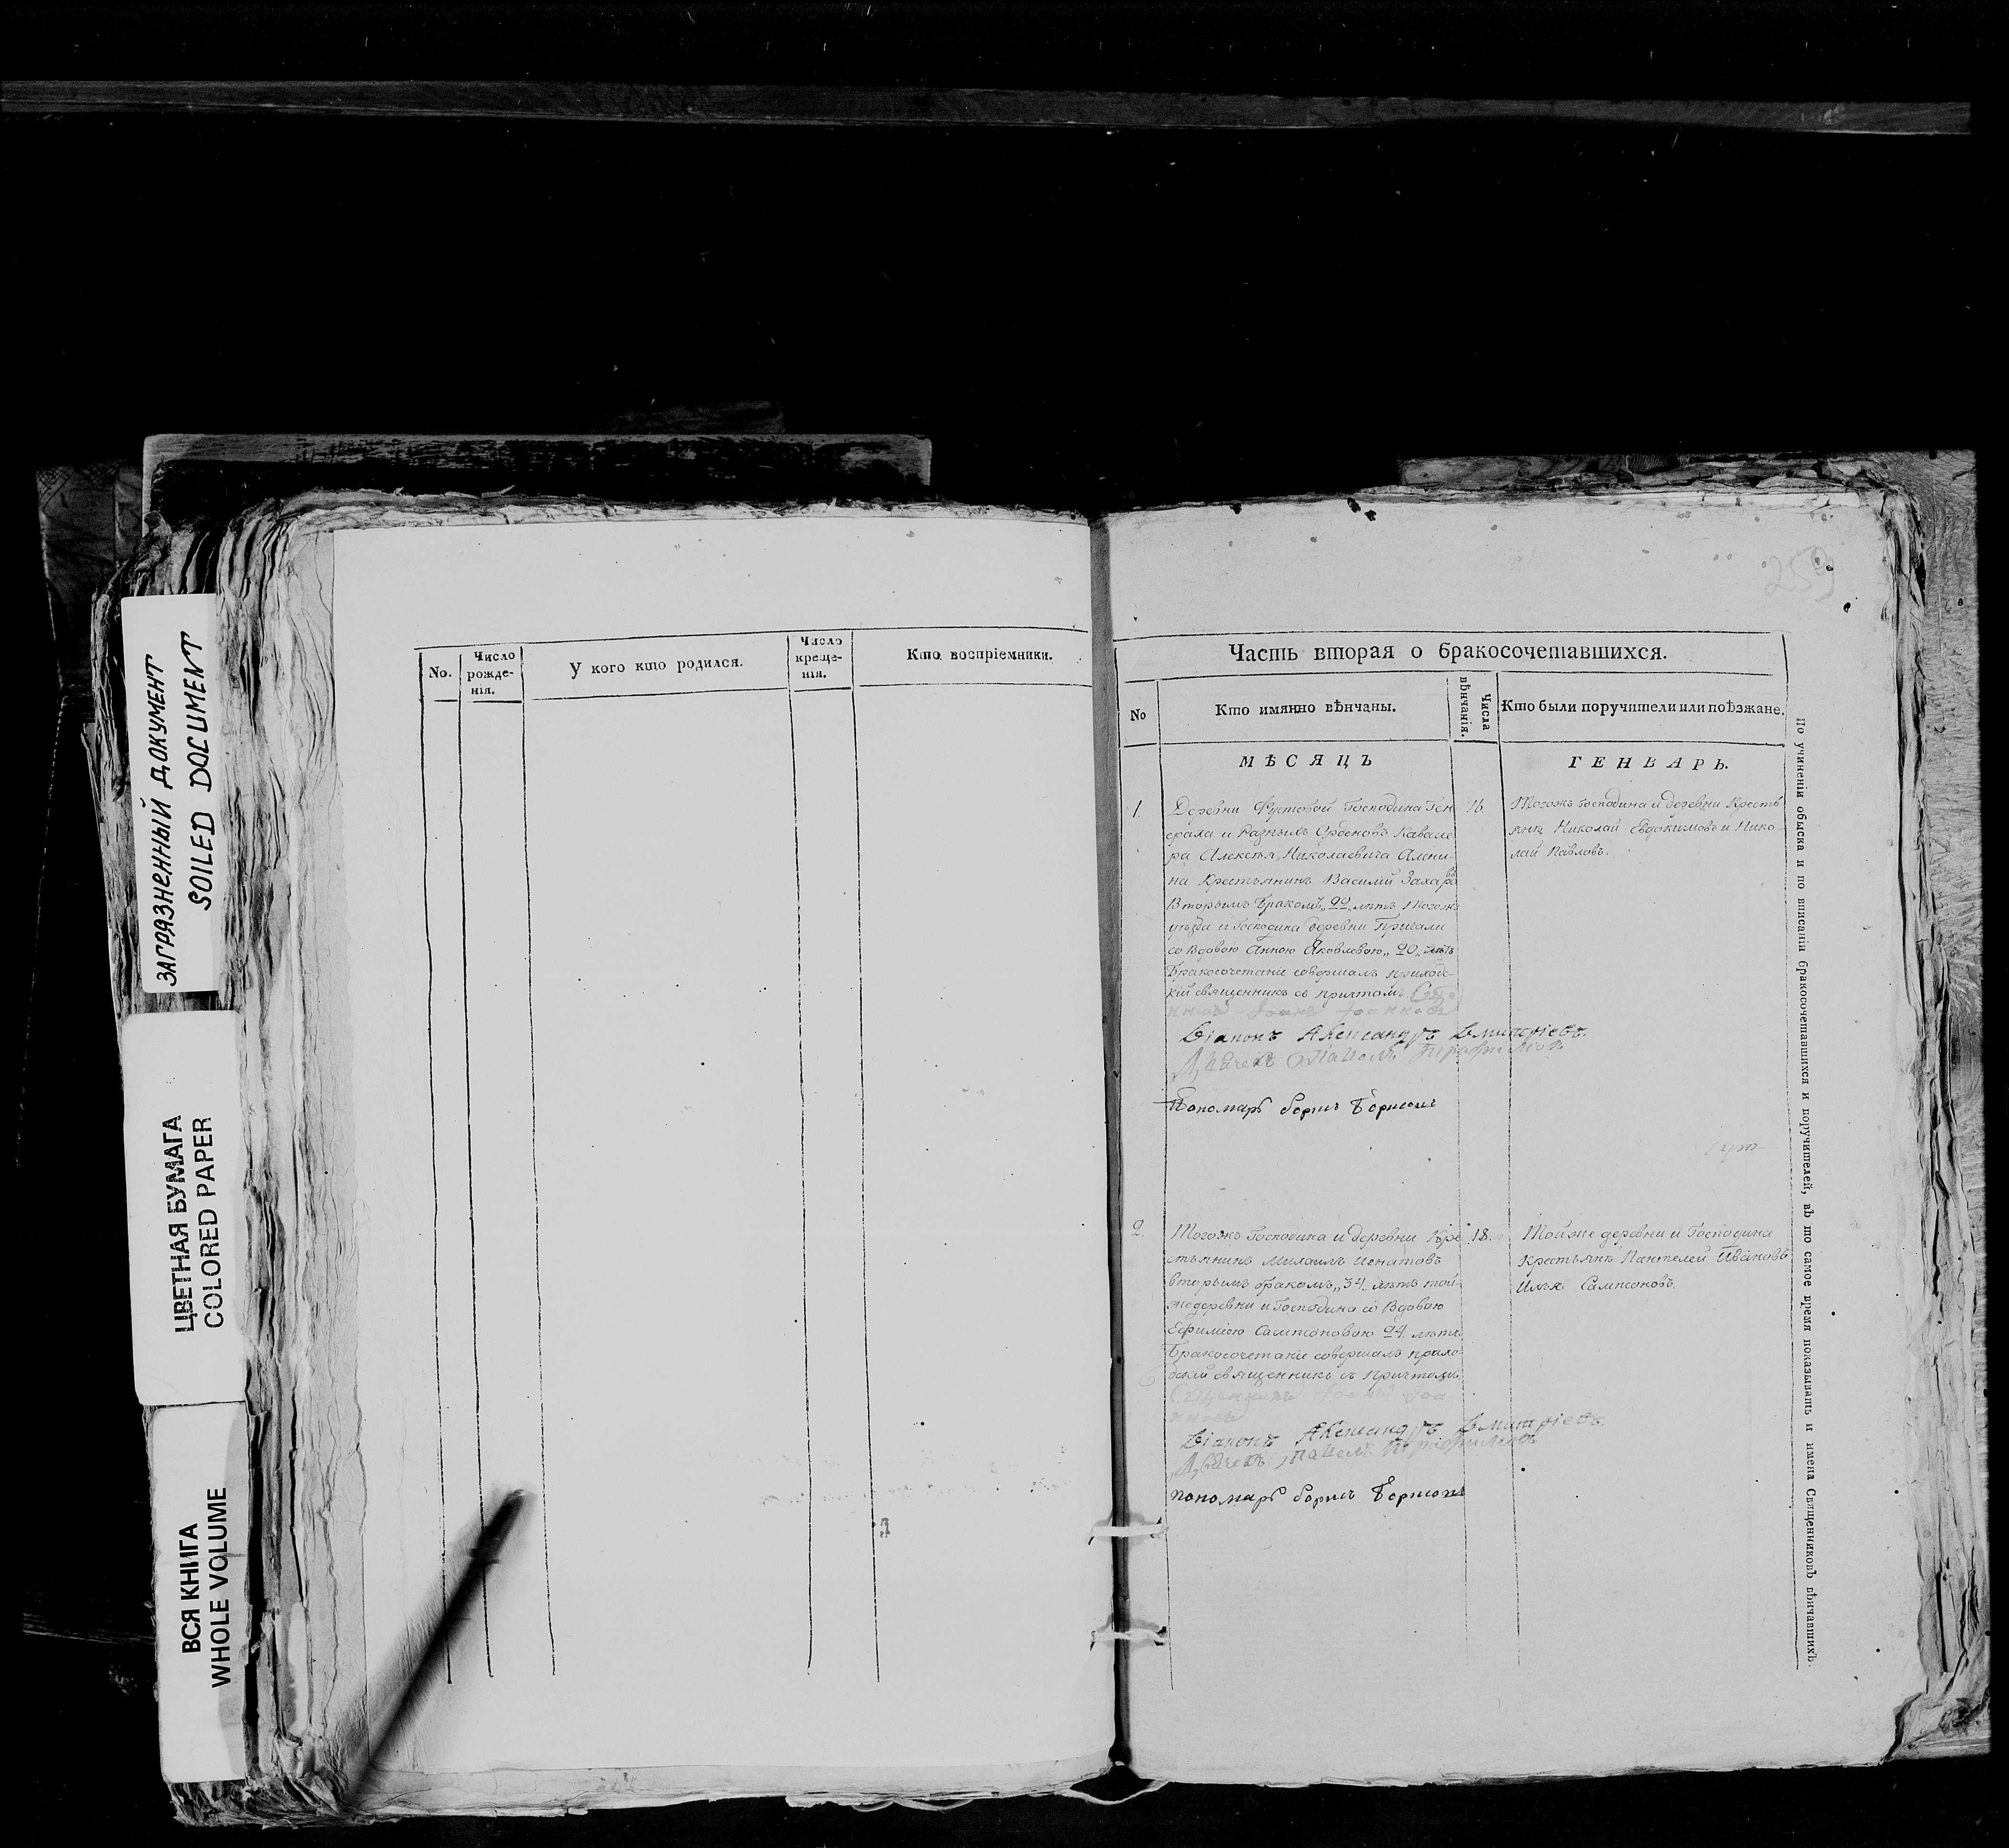 ЗАГРЯЗНЕННЫЙ ДОКУМЕНТ
SOILED DOCUMENT
ЦВЕТНАЯ БУМАГА
COLORED PAPER
ВСЯ КНИГА
WHOLE VOLUME
No.
Число рожденія.
У кого кто родился.
Число крещенія.
Кто воспріемники.
259
Часть вторая о бракосочетавшихся.
No
Кто имянно вѣнчаны.
Числа вѣнчанія.
Кто были поручители или поѣзжане.
МѢСЯЦЪ
ГЕНВАРЬ.
1.
Деревни Господина Ген
ерала и Разныхъ Орденовъ Кавале
ра Алексѣя Николаевича
на Крестьянинъ Василий Захаровъ
Вторымъ бракомъ, 22, лѣтъ тогожъ
уѣзда и Господина деревни
со Вдовою Анною Яковлевою, 20, лѣтъ
Бракосочетаніе совершалъ приход-
кій священникъ съ причтомъ
Діаконъ Александръ Дмитріевъ.
Дьячекъ
Пономарь борисъ Борисовъ
16
Тогожъ господина и деревни Кресть
яня Николай Евдокимовъ и Нико
лай Павловъ.
2
Тогожъ Господина и деревни Кре
стьянинъ Игнатовъ
вторымъ бракомъ, 34, лѣтъ той-
жедеревни и Господина со Вдовою
Ефиміею Сампсоновою 24. лѣтъ
Бракосочетаніе совершалъ прихо
дскій священникъ съ Причтомъ
Діаконъ Александръ Дмитріевъ.
Дьячекъ
пономарь борисъ Борисовъ
18
Тойже деревни и Господина
крестьянъ Пантелей Ивановъ
Илья Сампсоновъ.
По учиненіи обыска и по вписаніи бракосочетавшихся и поручителей, въ то самое время показывать и имена Священниковъ вѣнчавшихъ.